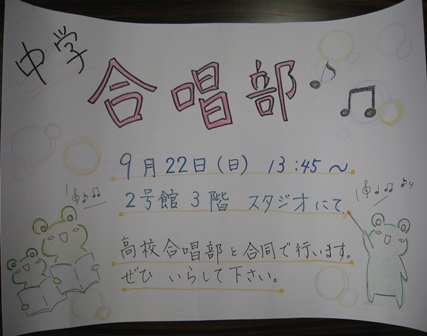 中学
合唱部
9月22日(日) 13:45〜
2号館 3階 スタジオにて
高校合唱部と合同で行います。
ぜひ いらして下さい。